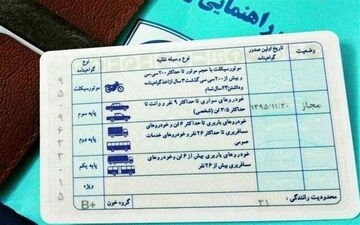 راهنمایی
وضعیت
تاریخ اولین صدور گواهینامه
نوع وسیله نقلیه
نوع گواهینامه
موتورسیکلت با حجم موتور تا حداکثر ۲۰۰ سی سی
و بیش از ۲۰۰ سی سی گذشت ۳ سال از اخذ گواهینامه
و داشتن ۲۳ سال تمام
موتورسیکلت
خودروهای سواری تا حداکثر ۹ نفر و وانت تا
حداکثر ۳/۵ تن (شخصی)
پایه سوم
۱۳۹۵/۱۱/۳۰
مجاز
خودروهای باربری تا حداکثر ۶ تن و خودروهای
مسافربری تا حداکثر ۲۶ نفر و خودروهای خدمات
عمومی
پایه دوم
خودروهای باربری بیش از ۶ تن و خودروهای
مسافربری بیش از ۲۶ نفر
پایه یکم
ویژه
محدودیت رانندگی :
۳۱
گروه خون
B+